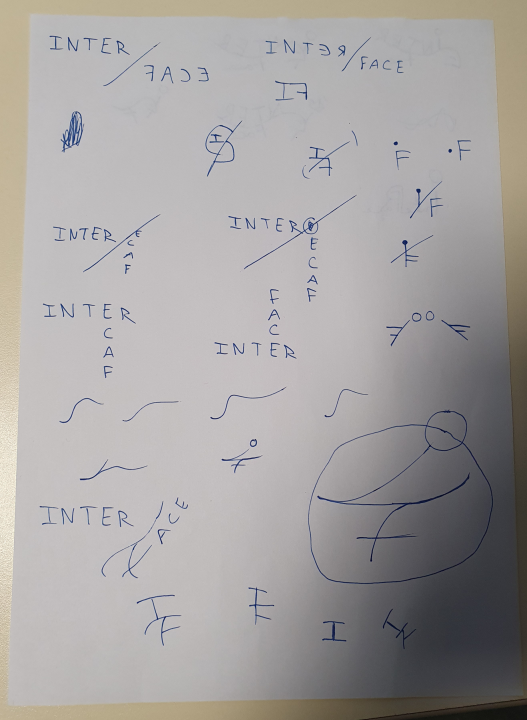 INTER / FACE
INTER / FACE
IF
I
IF
F
F
F
INTER
ECAF
INTER
ECAF
F
INTER
CAF
FAC
INTER
INTER
FACE
IF
IF
I
IF